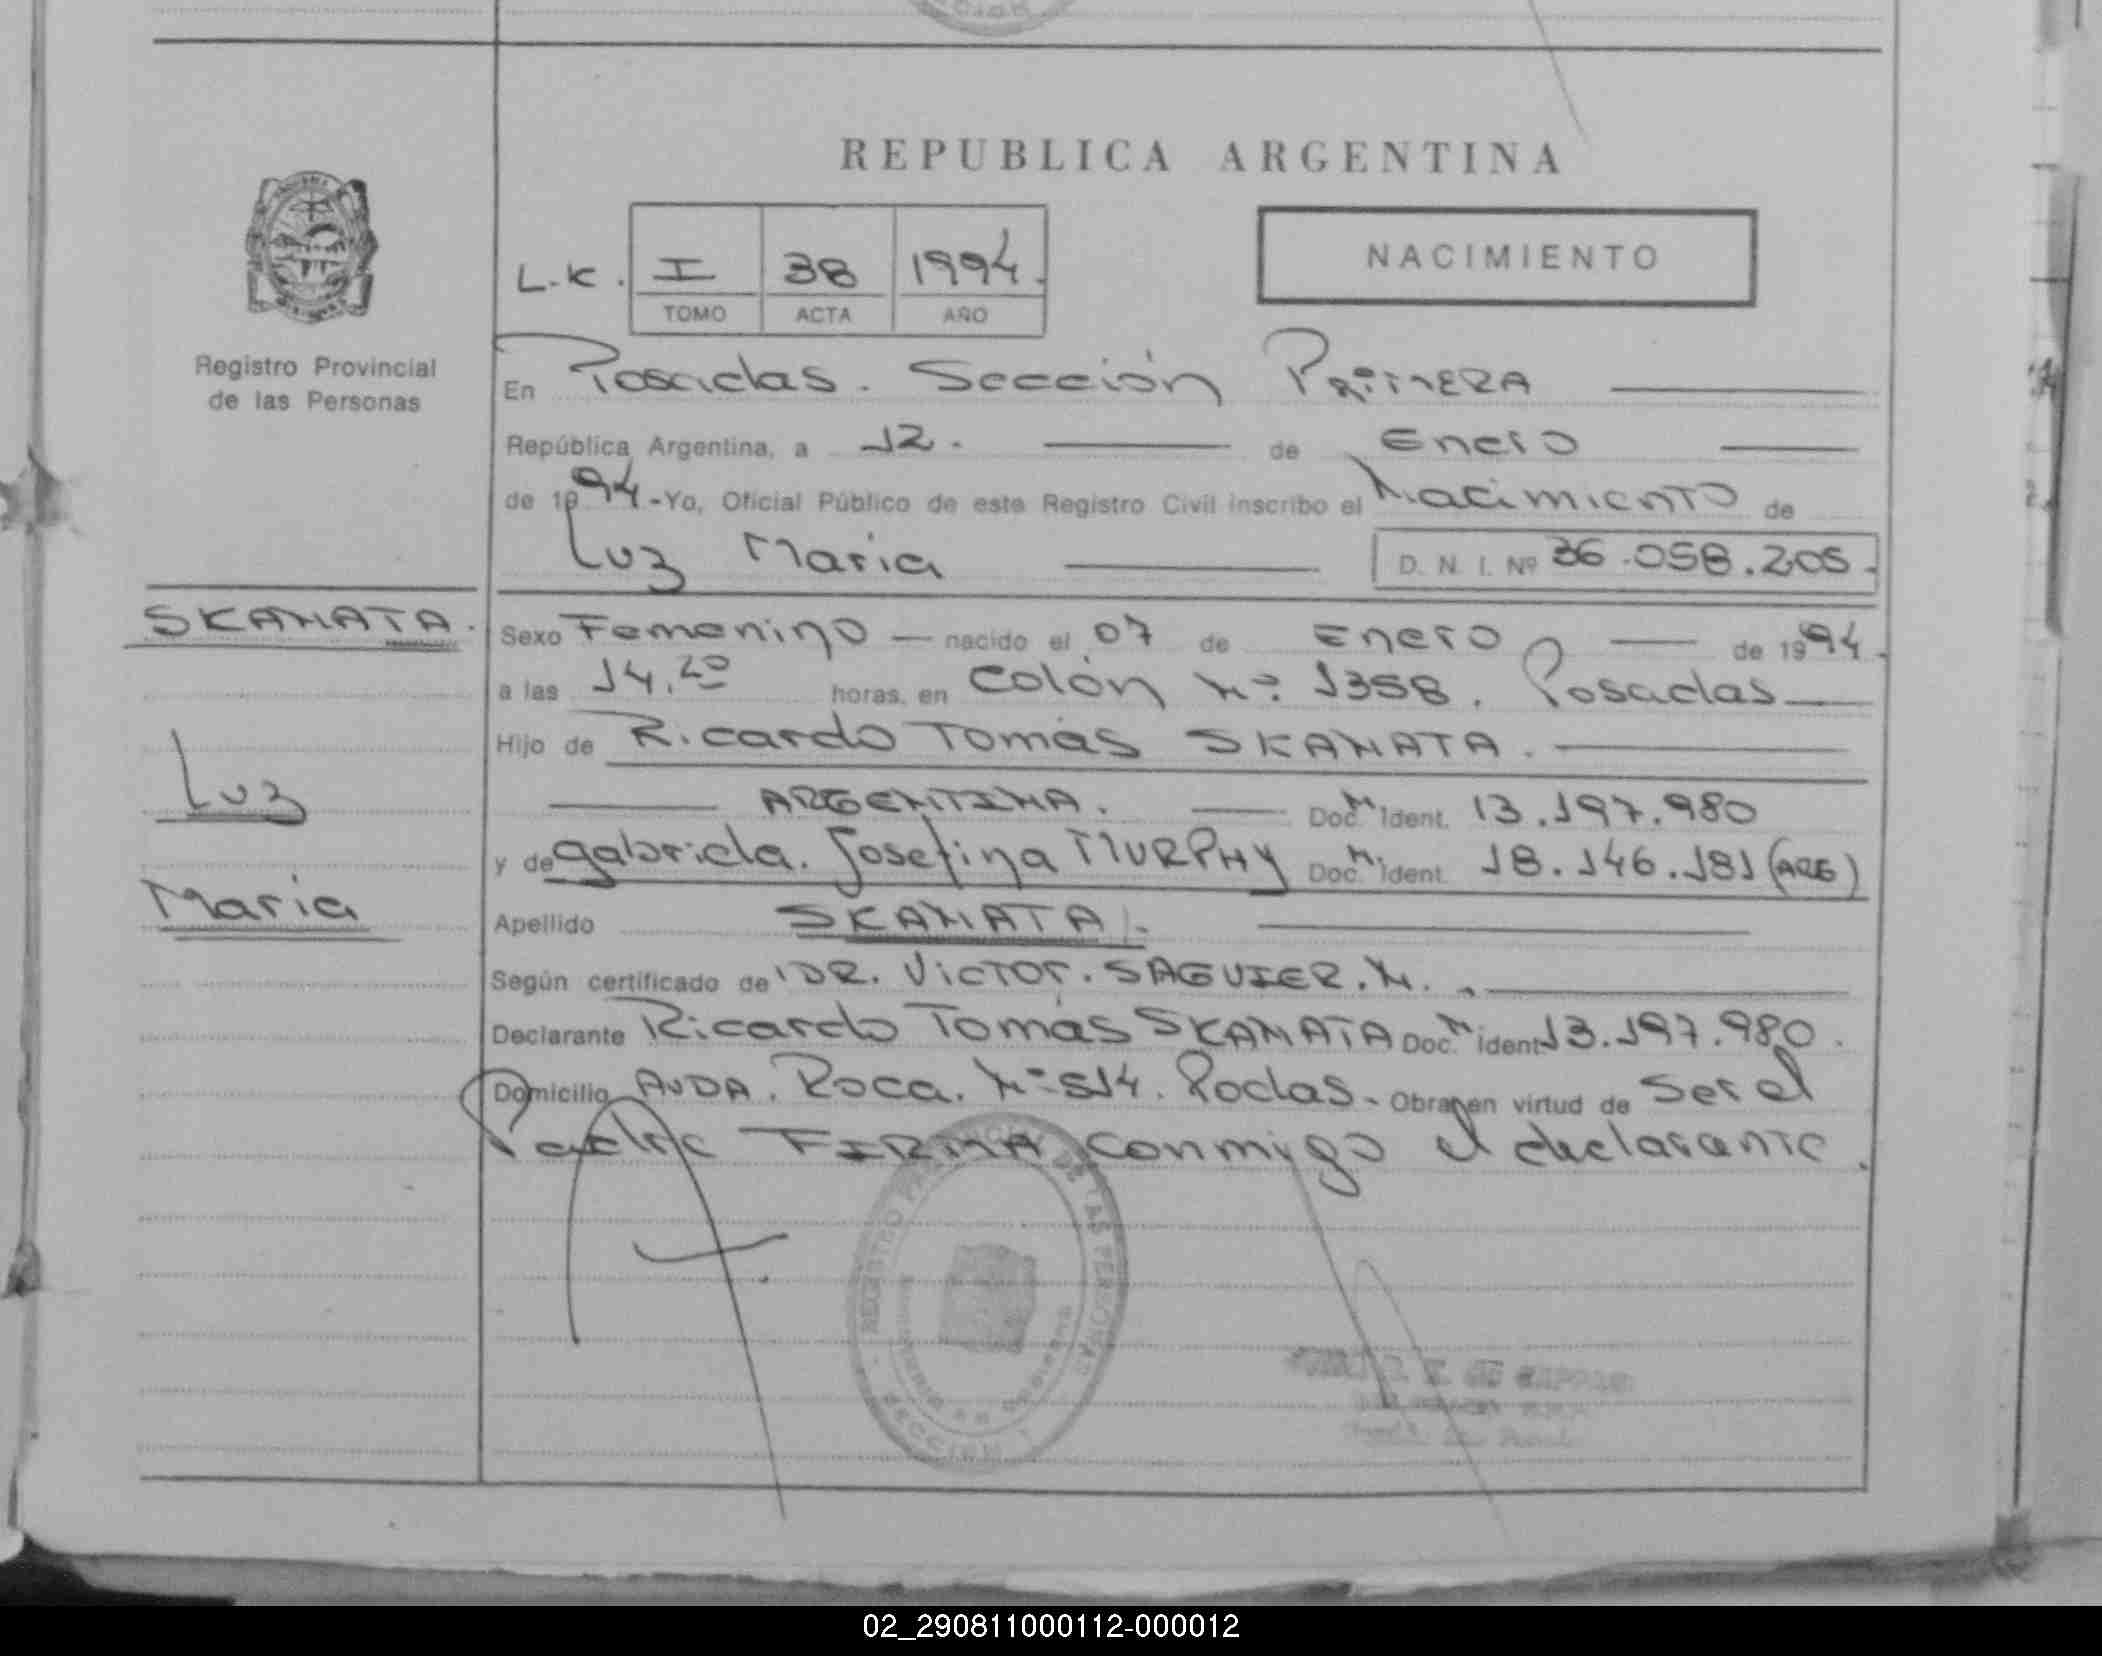 REPUBLICA ARGENTINA
NACIMIENTO
L.K. I 38 1994.
TOMO ACTA AÑO
Registro Provincial
de las Personas
En Posadas. Sección PRIMERA
República Argentina, a 12. de Enero
de 1994.-Yo, Oficial Público de este Registro Civil inscribo el Nacimiento de
Luz Maria D. N. I. Nº 36.058.205.
SKANATA.
Luz
Maria
Sexo Femenino nacido el 07 de Enero de 1994.
a las 14,20 horas, en Colón Nº 1358. Posadas
Hijo de Ricardo Tomás SKANATA.
ARGENTINA. Doc. N. Ident. 13.197.980
y de Gabriela. Josefina MURPHY Doc. N. Ident. 18.146.181 (ARG)
Apellido SKANATA.
Según certificado de DR. Victor. SAGUIER. N.
Declarante Ricardo Tomás SKANATA Doc. N ident 13.197.980.
Domicilio AVDA. Roca. Nº 514. Podas. Obra en virtud de Ser el
Padre FIRMA conmigo el declarante.
REGISTRO PROVINCIAL DE LAS PERSONAS
SECCION
02_290811000112-000012